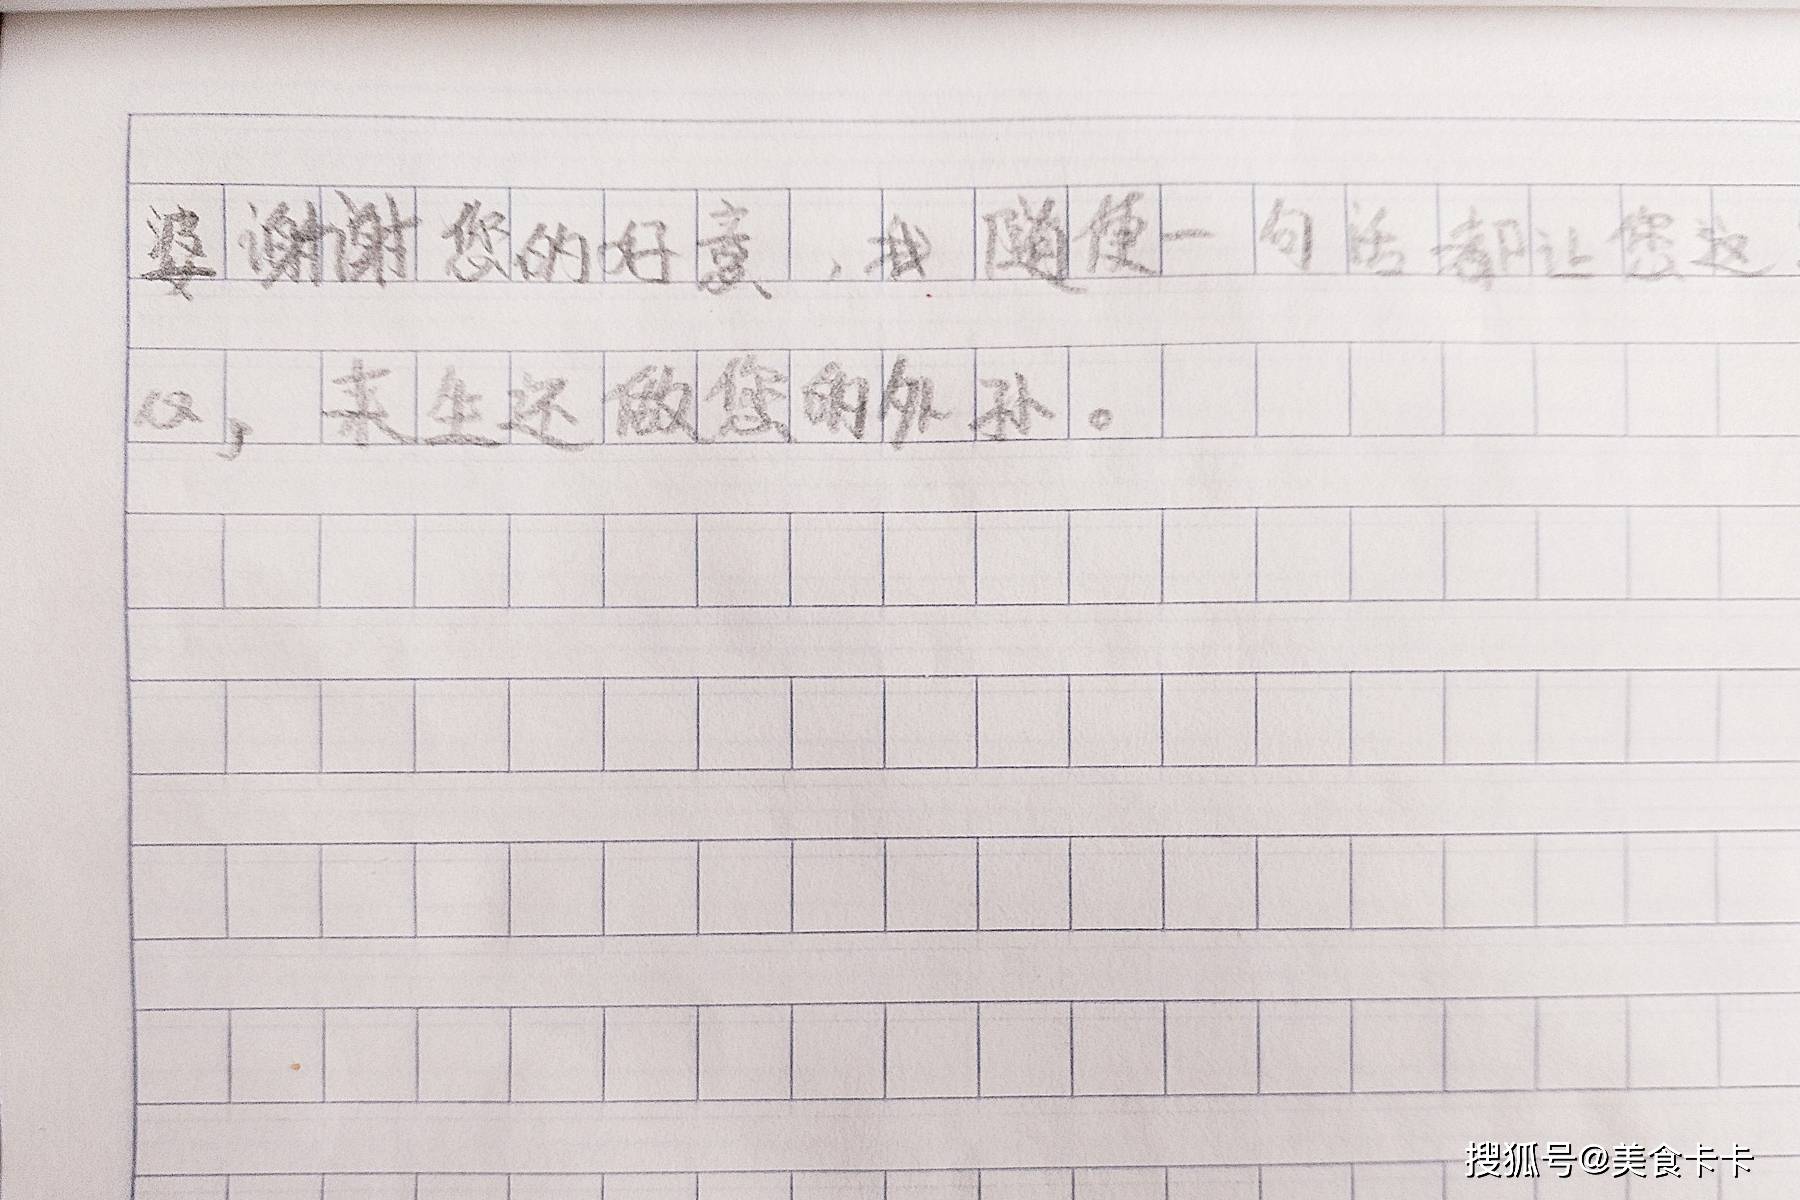 婆谢谢您的好意，我随便一句话都让您这
心，来生还做您的外孙。
搜狐号@美食卡卡